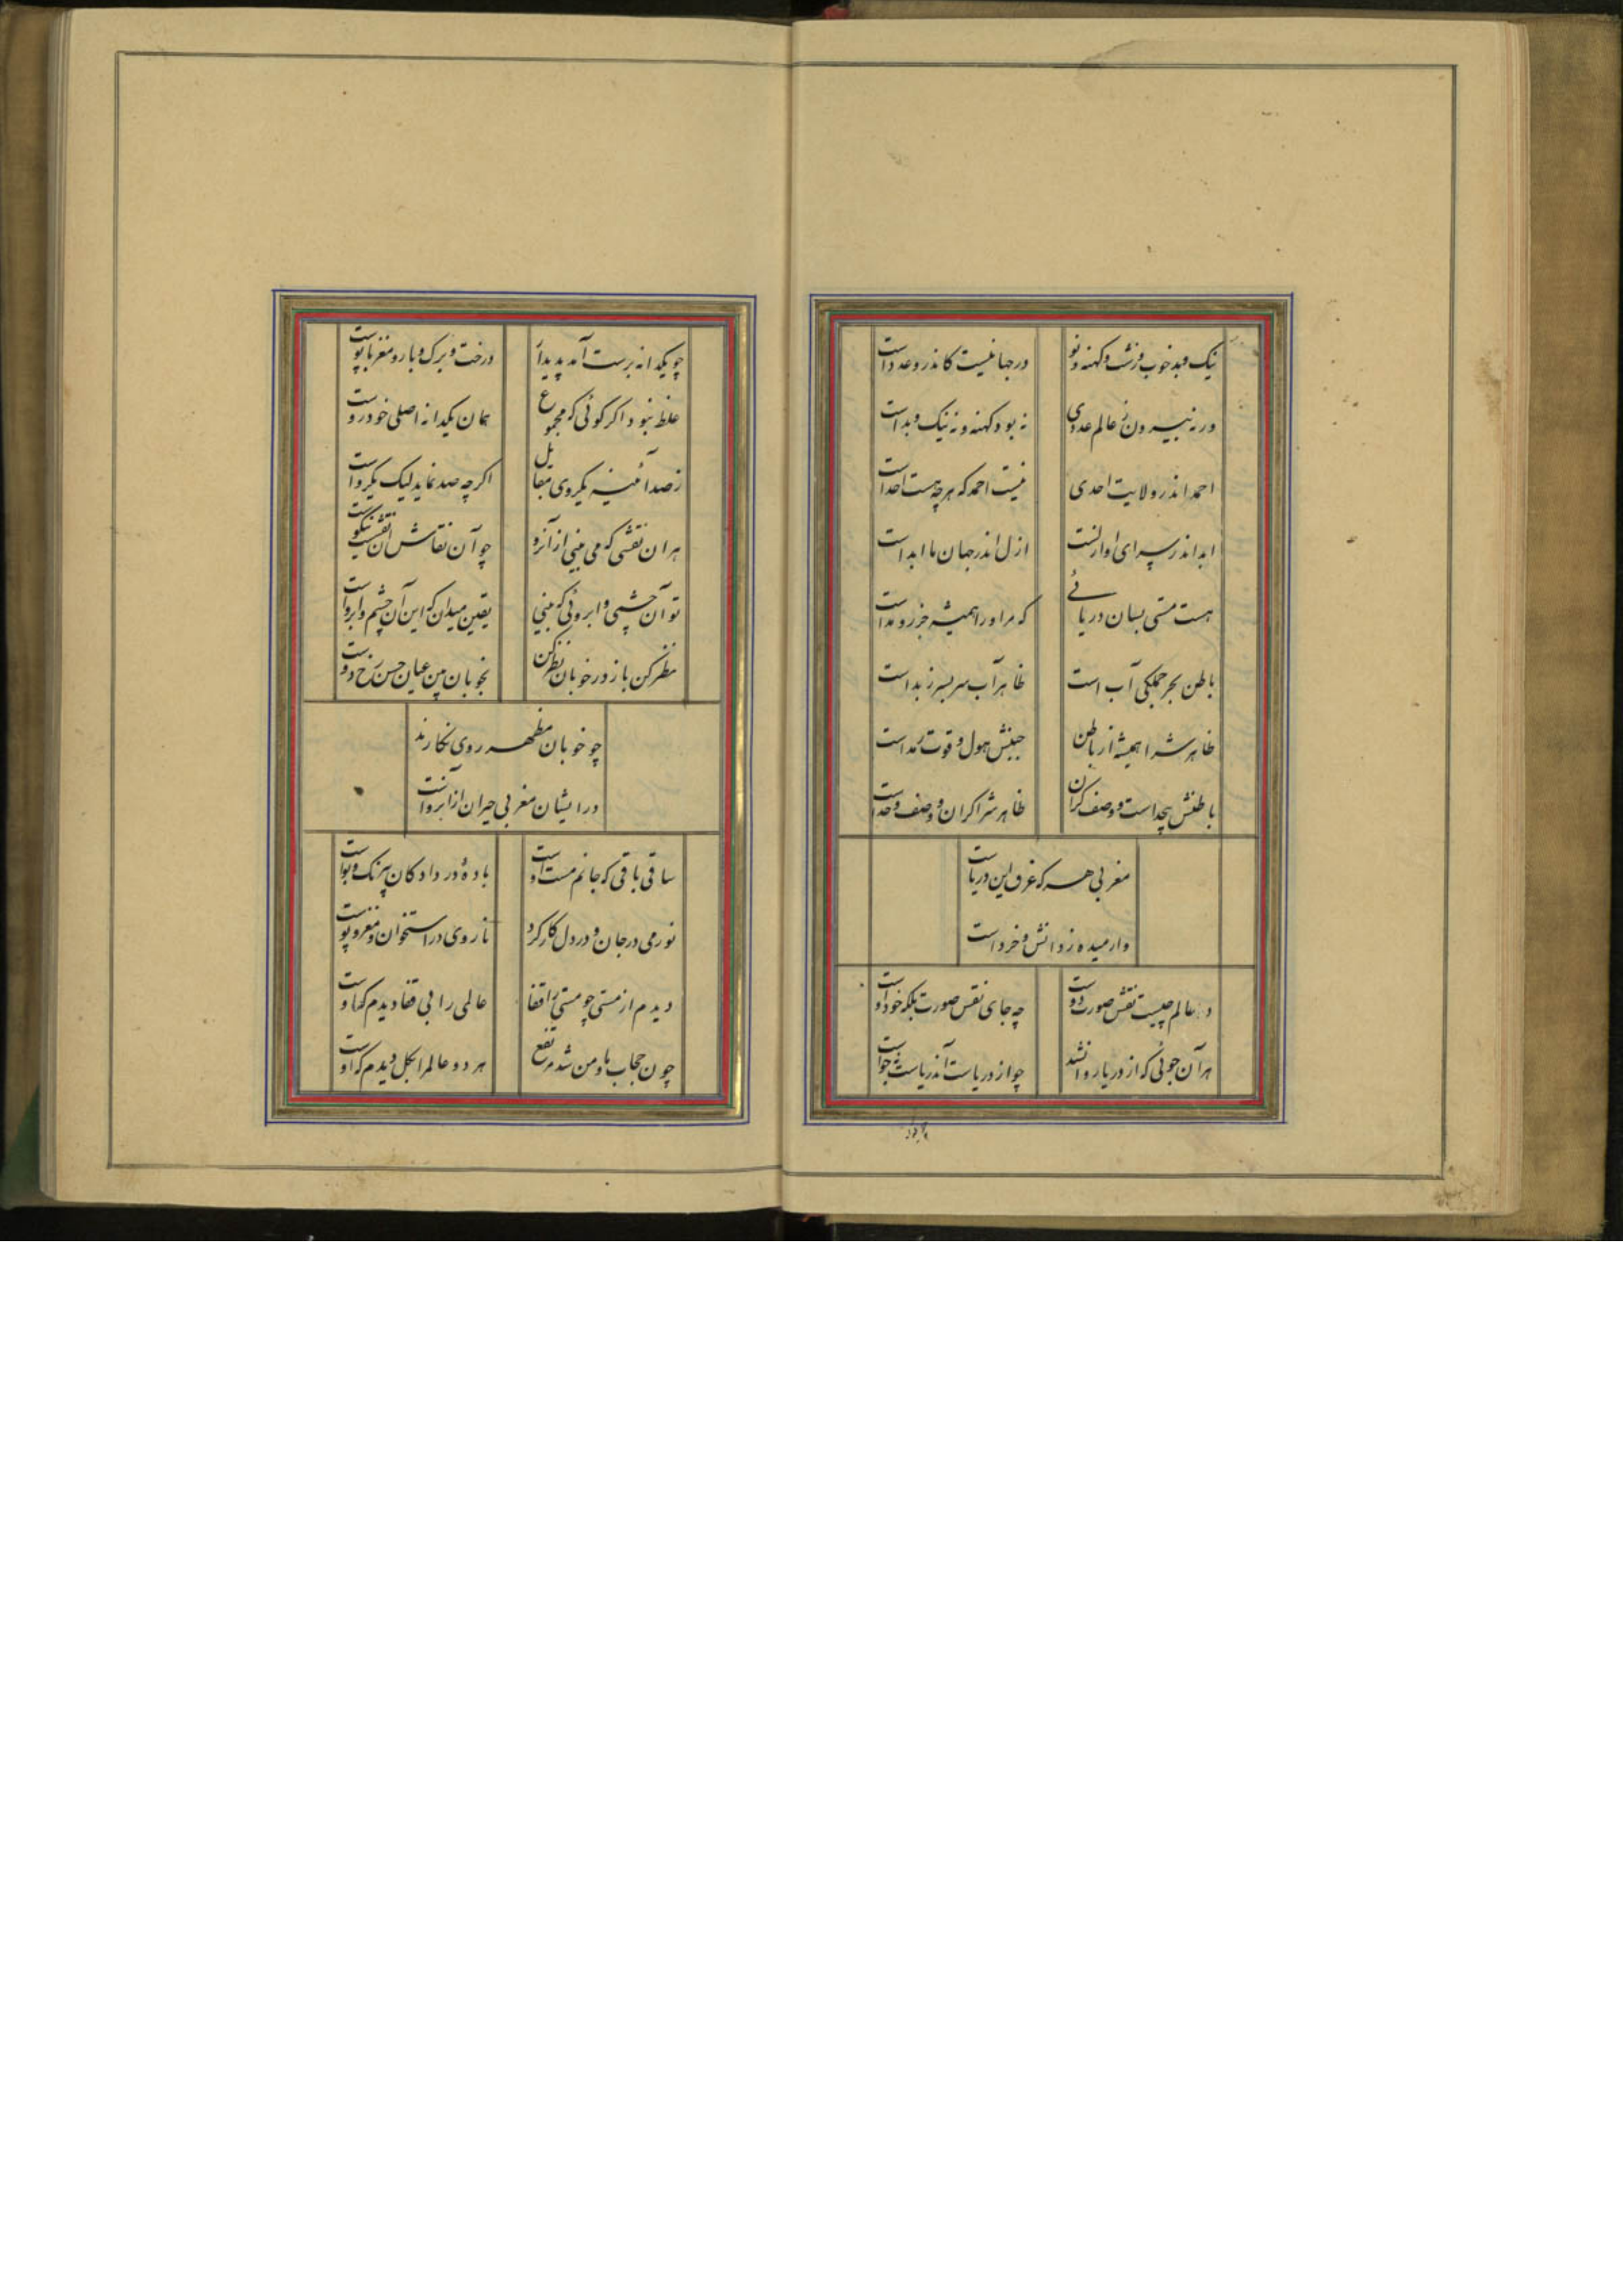 نیک و بد خوب و زشت و کهنه و نو در جهانیست کاندرو عدد است
ورنه بیرون ز عالم عددی نه بود کهنه و نه نیک و بد است
احمد اندر ولایت احدی نیست احمد که هرچه هست احد است
ابد اندر سرای او ازلست ازل اندر جهان ما ابد است
هست هستی بسان دریائی که مر او را همیشه جزر و مد است
باطن بحر جملگی آب است ظاهر آب سر بسر زبد است
ظاهرش را همیشه از باطن جنبش هول و قوت و مدد است
باطنش بیحد است و وصف کران ظاهرش را کران و وصف و حد است
مغربی هر که غرق این دریاست
وارمیده ز دانش و خرد است
دو عالم چیست نقش صورت دوست چه جای نقش صورت بلکه خود اوست
هر آن جوئی که از دریا روانشد چو از دریاست آن دریاست نه جوست
چو یکدانه برست آمد پدیدار درخت و برک و بار و مغز با پوست
غلط نبود اکر کوئی که مجموع همان یکدانه اصلی خودروست
ز صد آئینه یکروی مقابل اکرچه صد نماید لیک یکروست
هر ان نقشی که می بینی از آنرو چو آن نقاش را نقشیست نیکوست
تو آن چشمی و ابروئی که بینی یقین میدان که این آن چشم و ابروست
نظر کن باز در خوبان نظر کن بخوبان بین عیان حسن رخ دوست
چو خوبان مظهر روی نکارند
در ایشان مغربی حیران از آنروست
ساقی باقی که جانم مست اوست باده در داد کان بیرنک و بوست
نور می در جان و در دل کار کرد نار وی در استخوان و مغز و پوست
دیدم از مستی چو مستی را قفا عالمی را بی قفا دیدم که اوست
چون حجاب ما و من شد مرتفع هر دو عالم را بکل دیدم که اوست